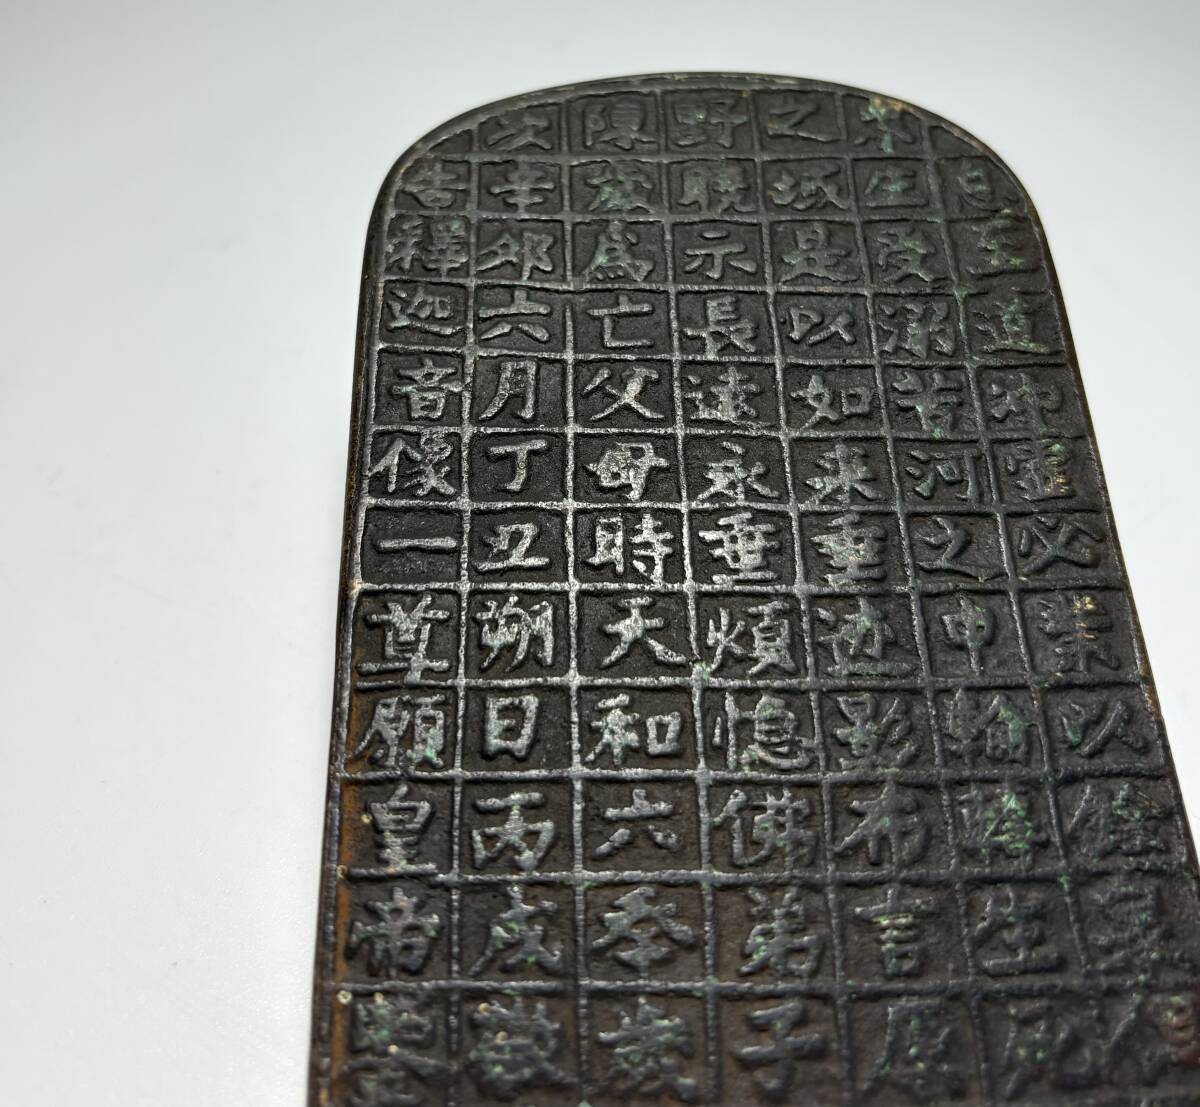 至道沖靈必業以
生受溺苦河之中輪轉生死
之域是以如来重迹影布言
野曉示長遠永垂煩惚佛弟子
陳茂為亡父母時天和六年歲
次辛卯六月丁丑朔日丙戌敬
釋迦音像一尊願皇帝